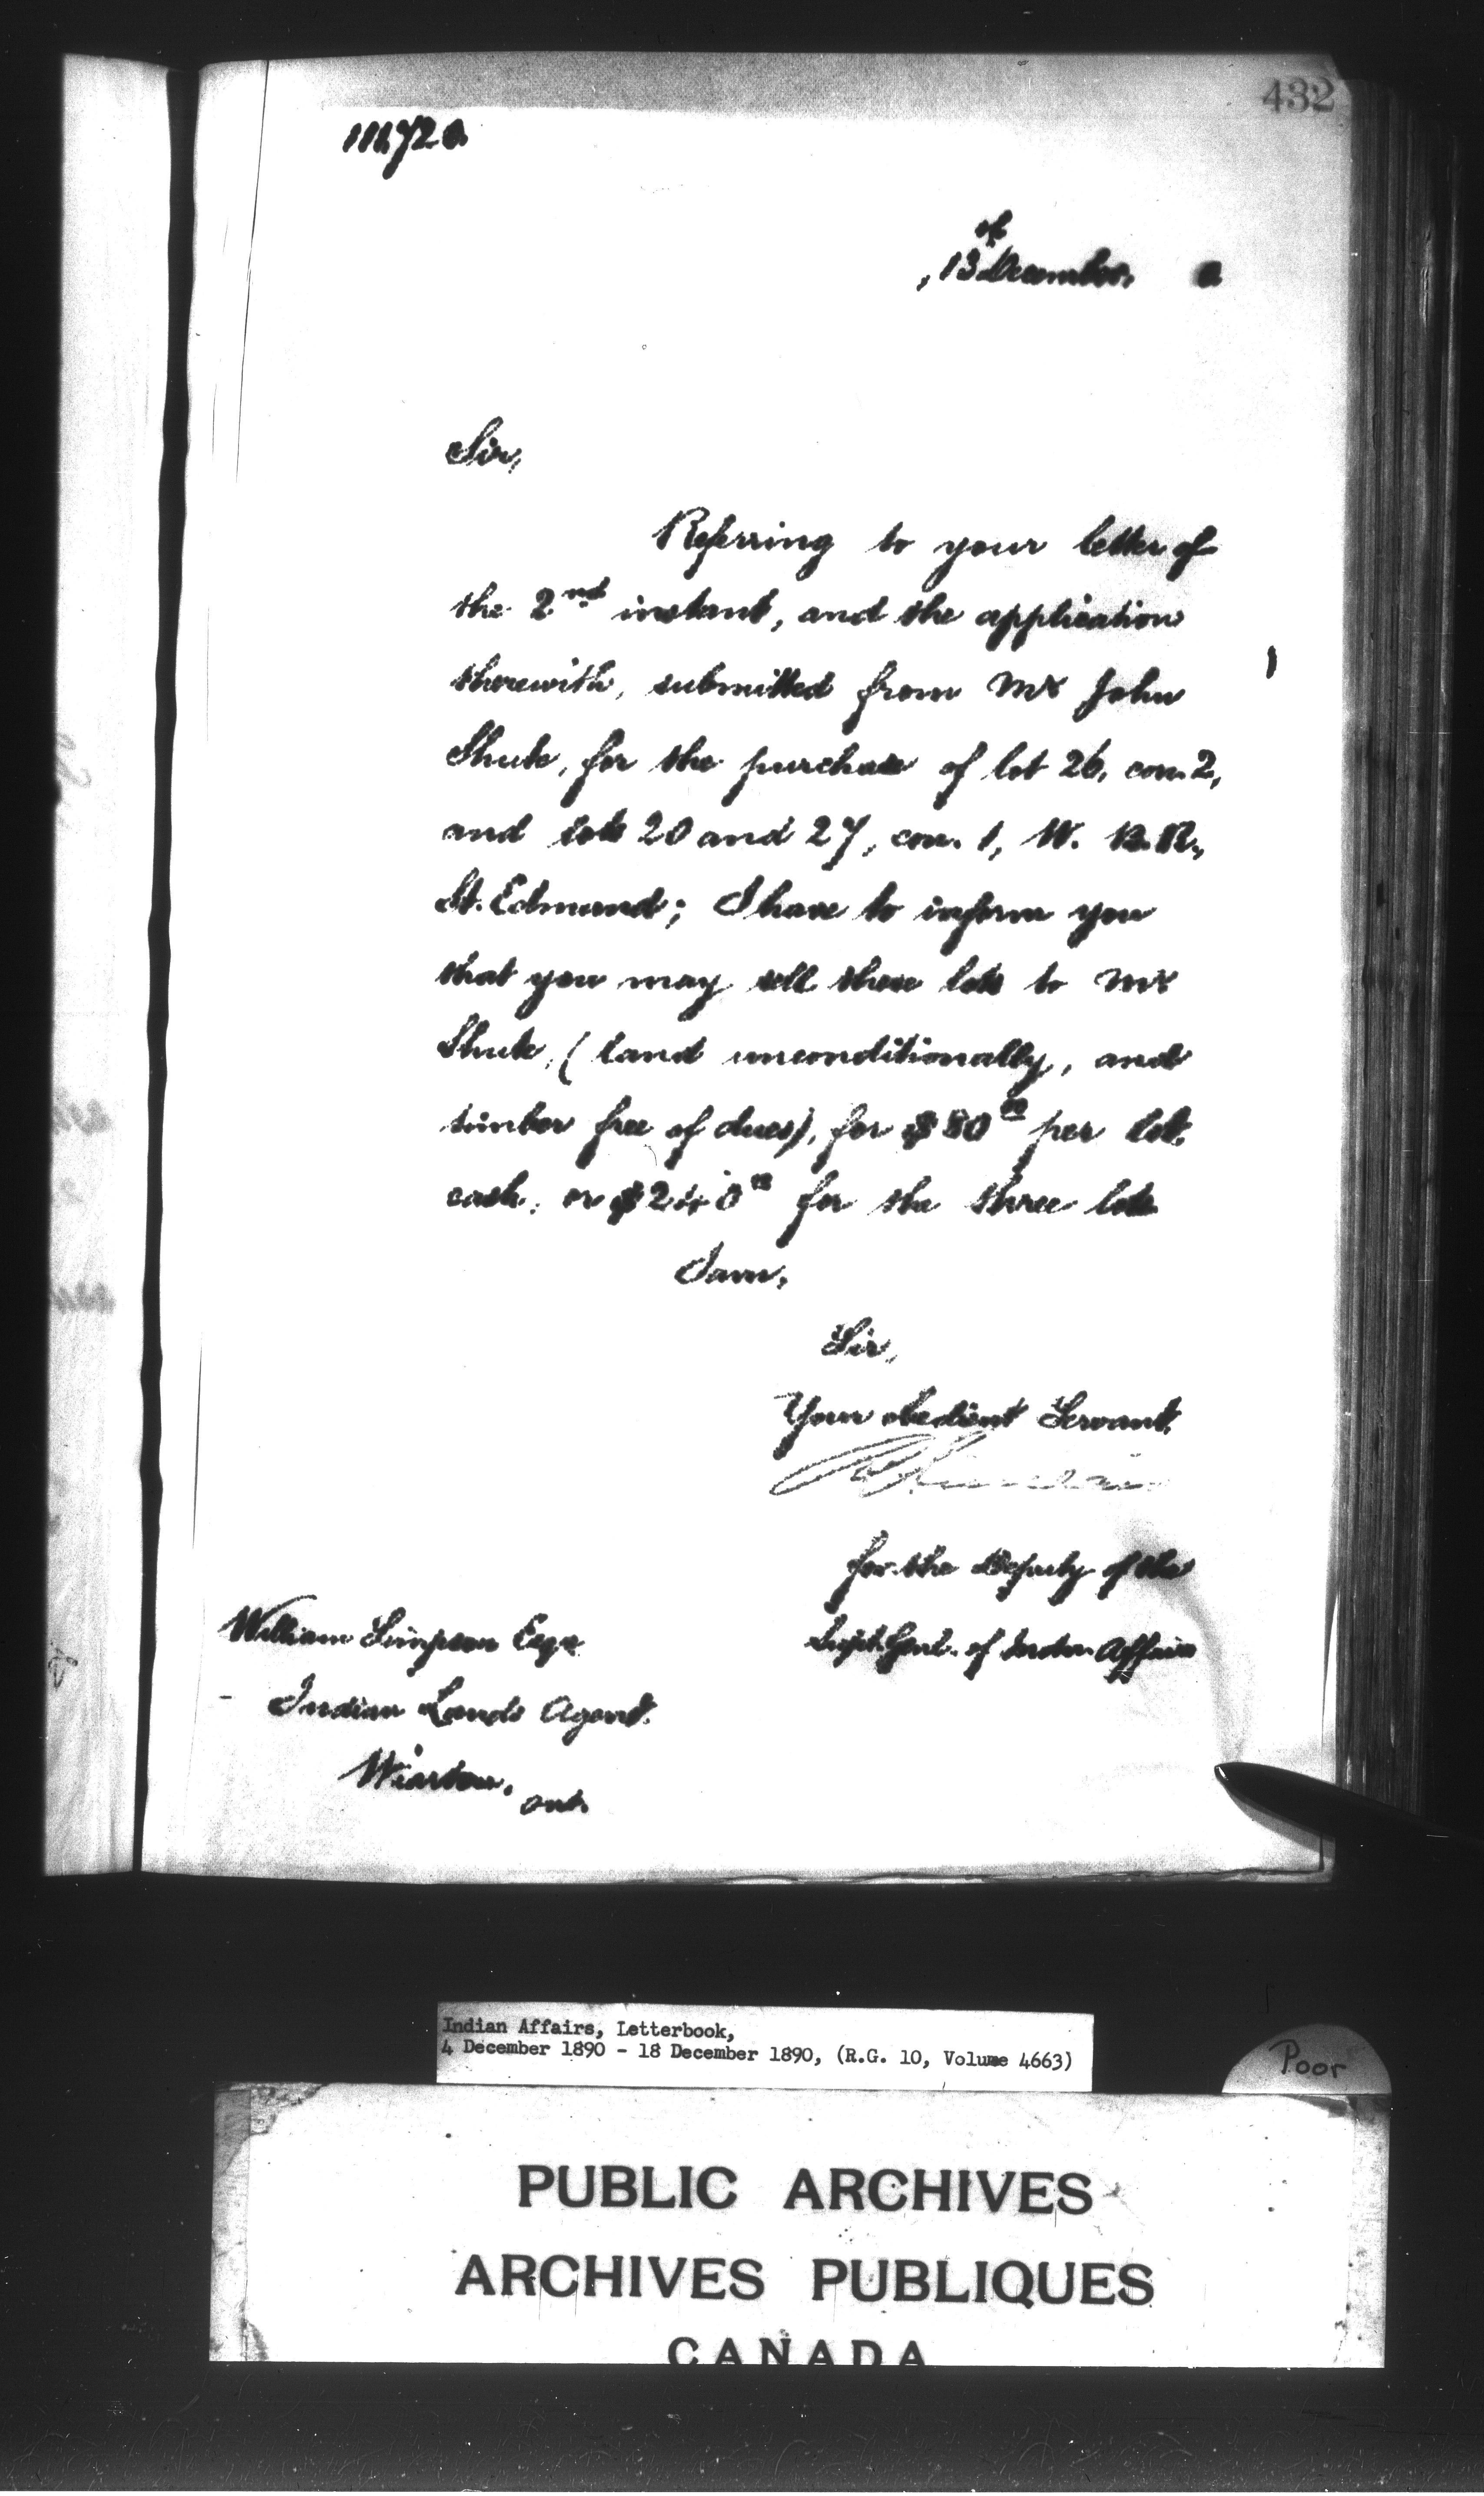 432
13th December, 0
Sir,
Referring to your letter of
the 2nd instant, and the application
therewith, submitted from Mr John
Shute, for the purchase of lot 26, con. 2,
and lots 20 and 27, con. 1, W. B. R.,
St. Edmund; I have to inform you
that you may sell these lots to Mr
Shute, (land unconditionally, and
timber free of dues), for $80 00 per lot
cash, or $240 00 for the three lots
I am,
Sir,
Your obedient Servant.
for the Deputy of the
Supt. Genl. of Indian Affairs
William Simpson Esqr
Indian Lands Agent.
Wiarton, Ont.
Indian Affairs, Letterbook,
4 December 1890 - 18 December 1890, (R.G. 10, Volume 4663)
Poor
PUBLIC ARCHIVES
ARCHIVES PUBLIQUES
CANADA